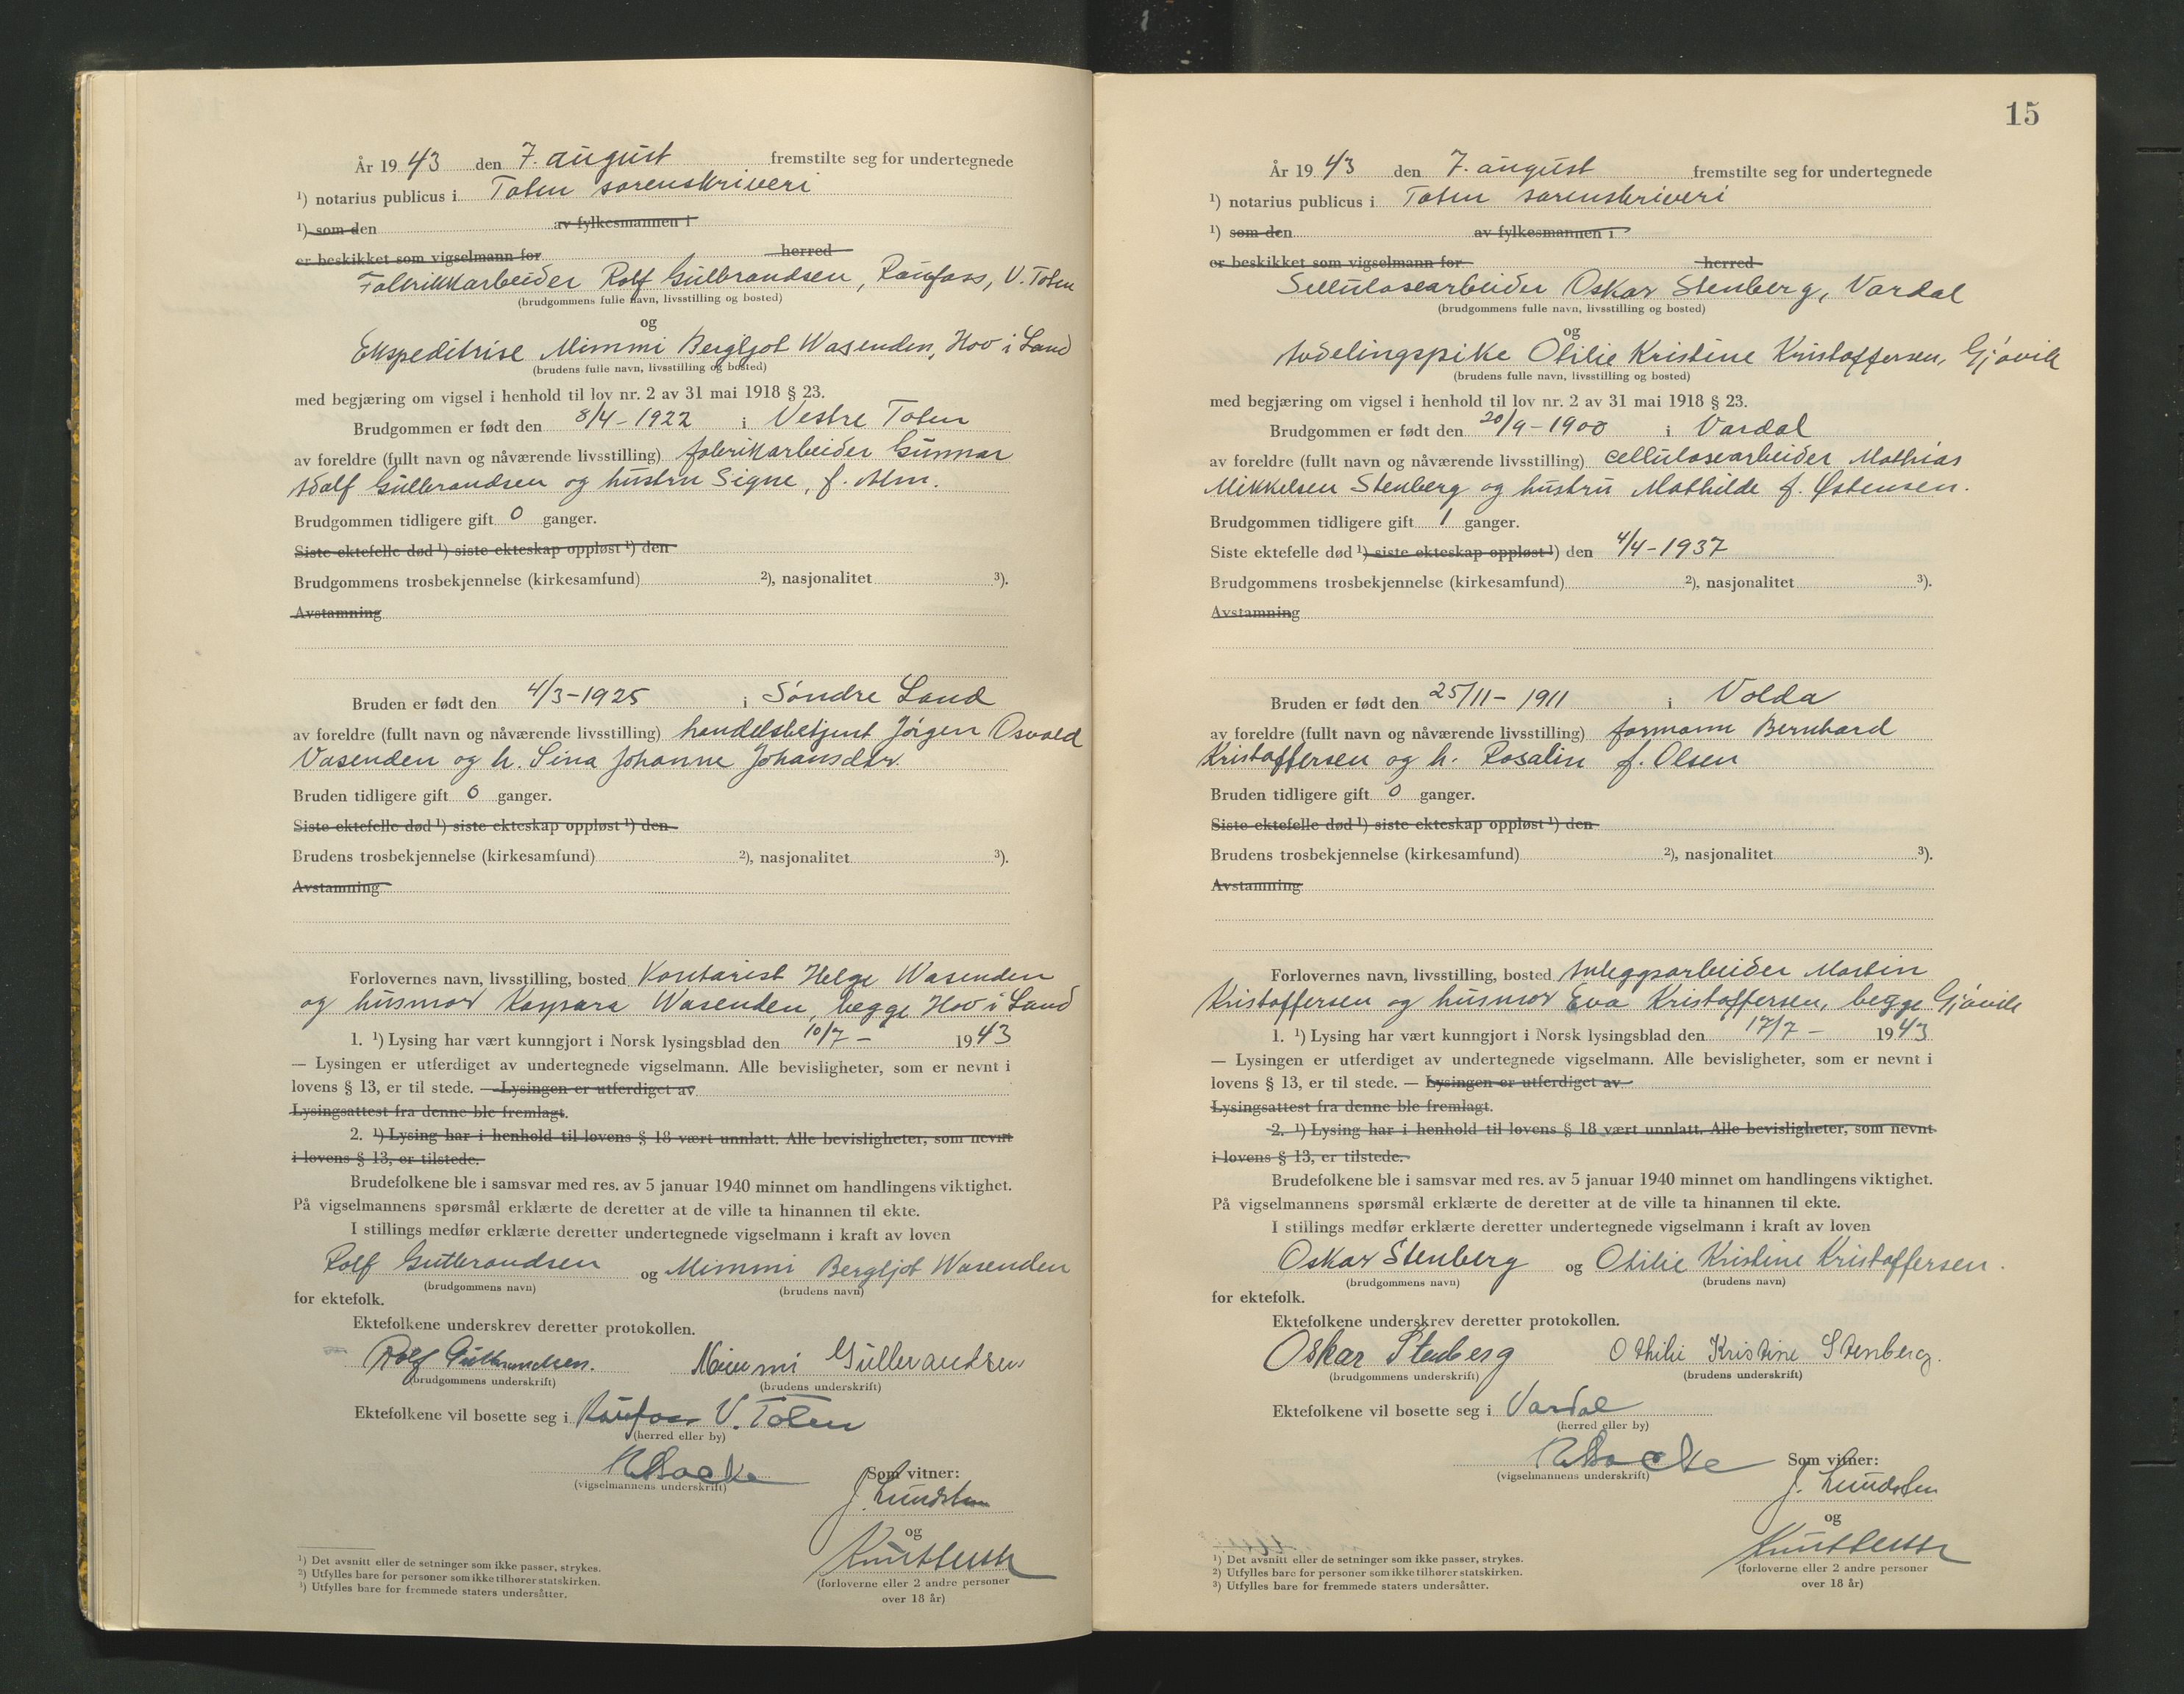 År 19 43 den 7. august fremstilte seg for undertegnede
¹) notarius publicus i Toten sorenskriveri
¹) som den av fylkesmannen i
er beskikket som vigselmann for herred
Fabrikkarbeider Rolf Gulbrandsen, Raufoss, V. Toten
(brudgommens fulle navn, livsstilling og bosted)
og
Ekspeditrise Mimmi Bergljot Wasenden, Hov i Land
(brudens fulle navn, livsstilling og bosted)
med begjæring om vigsel i henhold til lov nr. 2 av 31 mai 1918 § 23.
Brudgommen er født den 8/4-1922 i Vestre Toten
av foreldre (fullt navn og nåværende livsstilling) fabrikarbeider Gunnar
Adolf Gulbrandsen og hustru Signe, f. Alm.
Brudgommen tidligere gift 0 ganger.
Siste ektefelle død ¹) siste ekteskap oppløst ¹) den
Brudgommens trosbekjennelse (kirkesamfund) ²), nasjonalitet ³).
Avstamning
Bruden er født den 4/3-1925 i Søndre Land
av foreldre (fullt navn og nåværende livsstilling) handelsbetjent Jørgen Osvald
Vasenden og h. Sina Johanne Johansdtr.
Bruden tidligere gift 0 ganger.
Siste ektefelle død ¹) siste ekteskap oppløst ¹) den
Brudens trosbekjennelse (kirkesamfund) ²), nasjonalitet ³).
Avstamning
Forlovernes navn, livsstilling, bosted Kontorist Helge Wasenden
og husmor Kaspara Wasenden, begge Hov i Land
1. ¹) Lysing har vært kunngjort i Norsk lysingsblad den 10/7 - 1943
— Lysingen er utferdiget av undertegnede vigselmann. Alle bevisligheter, som er nevnt i
lovens § 13, er til stede. — Lysingen er utferdiget av
Lysingsattest fra denne ble fremlagt.
2. ¹) Lysing har i henhold til lovens § 18 vært unnlatt. Alle bevisligheter, som nevnt
i lovens § 13, er tilstede.
Brudefolkene ble i samsvar med res. av 5 januar 1940 minnet om handlingens viktighet.
På vigselmannens spørsmål erklærte de deretter at de ville ta hinannen til ekte.
I stillings medfør erklærte deretter undertegnede vigselmann i kraft av loven
Rolf Gulbrandsen og Mimmi Bergljot Wasenden
(brudgommens navn) (brudens navn)
for ektefolk.
Ektefolkene underskrev deretter protokollen.
Rolf Gulbrandsen. Mimmi Gulbrandsen
(brudgommens underskrift) (brudens underskrift)
Ektefolkene vil bosette seg i Raufoss V. Toten
(herred eller by)
Som vitner:
(vigselmannens underskrift)
J. Lundsten
og
(forloverne eller 2 andre personer
over 18 år)
¹) Det avsnitt eller de setninger som ikke passer, strykes.
²) Utfylles bare for personer som ikke tilhører statskirken.
³) Utfylles bare for fremmede staters undersåtter.
15
År 19 43 den 7. august fremstilte seg for undertegnede
¹) notarius publicus i Toten sorenskriveri
¹) som den av fylkesmannen i
er beskikket som vigselmann for herred
Sellulosearbeider Oskar Stenberg, Vardal
(brudgommens fulle navn, livsstilling og bosted)
og
Avdelingspike Otilie Kristine Kristoffersen, Gjøvik
(brudens fulle navn, livsstilling og bosted)
med begjæring om vigsel i henhold til lov nr. 2 av 31 mai 1918 § 23.
Brudgommen er født den 20/9-1900 i Vardal
av foreldre (fullt navn og nåværende livsstilling) cellulosearbeider Mathias
Mikkelsen Stenberg og hustru Mathilde f. Østensen.
Brudgommen tidligere gift 1 ganger.
Siste ektefelle død ¹) siste ekteskap oppløst ¹) den 4/4-1937
Brudgommens trosbekjennelse (kirkesamfund) ²), nasjonalitet ³).
Avstamning
Bruden er født den 25/11-1911 i Volda
av foreldre (fullt navn og nåværende livsstilling) formann Bernhard
Kristoffersen og h. Rosalin f. Olsen
Bruden tidligere gift 0 ganger.
Siste ektefelle død ¹) siste ekteskap oppløst ¹) den
Brudens trosbekjennelse (kirkesamfund) ²), nasjonalitet ³).
Avstamning
Forlovernes navn, livsstilling, bosted Anleggsarbeider Martin
Kristoffersen og husmor Eva Kristoffersen, begge Gjøvik
1. ¹) Lysing har vært kunngjort i Norsk lysingsblad den 17/7 - 1943
— Lysingen er utferdiget av undertegnede vigselmann. Alle bevisligheter, som er nevnt i
lovens § 13, er til stede. — Lysingen er utferdiget av
Lysingsattest fra denne ble fremlagt.
2. ¹) Lysing har i henhold til lovens § 18 vært unnlatt. Alle bevisligheter, som nevnt
i lovens § 13, er tilstede.
Brudefolkene ble i samsvar med res. av 5 januar 1940 minnet om handlingens viktighet.
På vigselmannens spørsmål erklærte de deretter at de ville ta hinannen til ekte.
I stillings medfør erklærte deretter undertegnede vigselmann i kraft av loven
Oskar Stenberg og Otilie Kristine Kristoffersen.
(brudgommens navn) (brudens navn)
for ektefolk.
Ektefolkene underskrev deretter protokollen.
Oskar Stenberg Othilie Kristine Stenberg.
(brudgommens underskrift) (brudens underskrift)
Ektefolkene vil bosette seg i Vardal
(herred eller by)
Som vitner:
(vigselmannens underskrift)
J. Lundsten
og
(forloverne eller 2 andre personer
over 18 år)
¹) Det avsnitt eller de setninger som ikke passer, strykes.
²) Utfylles bare for personer som ikke tilhører statskirken.
³) Utfylles bare for fremmede staters undersåtter.